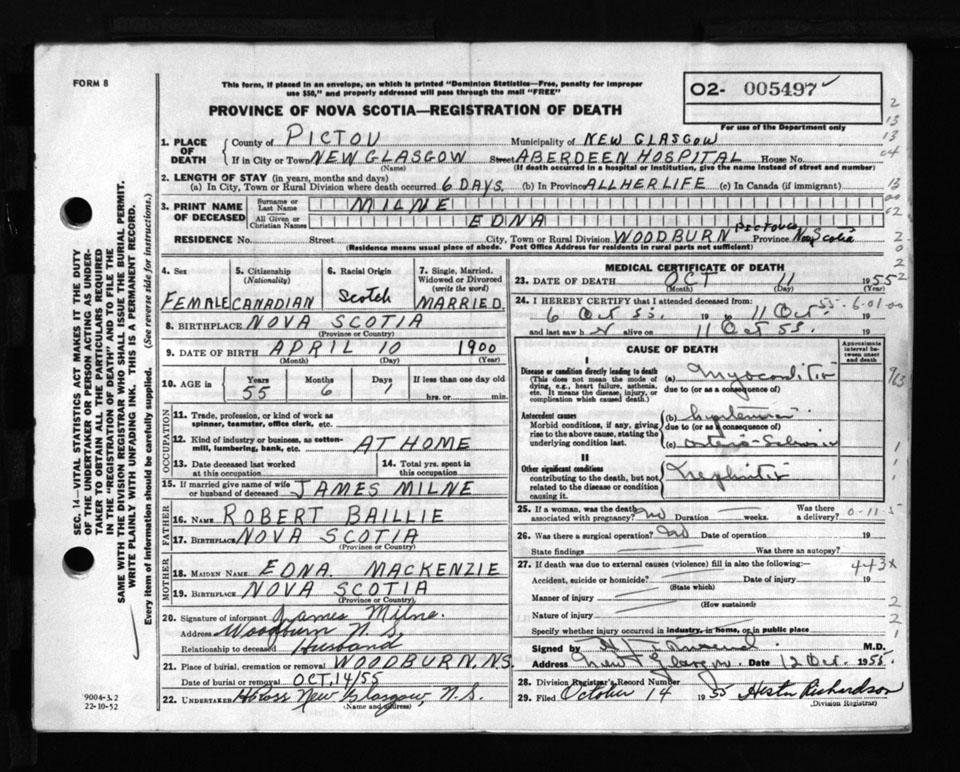 FORM 8
This form, if placed in an envelope, on which is printed "Dominion Statistics—Free, penalty for improper
use $50," and properly addressed will pass through the mail "FREE"
O2- 005497
For use of the Department only
PROVINCE OF NOVA SCOTIA—REGISTRATION OF DEATH
1. PLACE OF DEATH
County of PICTOU Municipality of NEW GLASGOW
If in City or Town NEW GLASGOW Street ABERDEEN HOSPITAL House No.
(Name) (If death occurred in a hospital or institution, give the name instead of street and number)
2. LENGTH OF STAY (in years, months and days)
(a) In City, Town or Rural Division where death occurred 6 DAYS (b) In Province ALL HER LIFE (c) In Canada (if immigrant)
3. PRINT NAME OF DECEASED
Surname or Last Name MILNE
All Given or Christian Names EDNA
RESIDENCE No. Street City, Town or Rural Division WOODBURN PICTOU CO Province Nova Scotia
(Residence means usual place of abode. Post Office Address for residents in rural parts not sufficient)
4. Sex FEMALE
5. Citizenship (Nationality) CANADIAN
6. Racial Origin Scotch
7. Single, Married, Widowed or Divorced (write the word) MARRIED
8. BIRTHPLACE NOVA SCOTIA
(Province or Country)
9. DATE OF BIRTH APRIL 10 1900
(Month) (Day) (Year)
10. AGE in Years 55 Months 6 Days 1 If less than one day old
hrs. or min.
OCCUPATION
11. Trade, profession, or kind of work as
spinner, teamster, office clerk, etc.
12. Kind of industry or business, as cotton-
mill, lumbering, bank, etc. AT HOME
13. Date deceased last worked
at this occupation
14. Total yrs. spent in
this occupation
15. If married give name of wife
or husband of deceased JAMES MILNE
FATHER
16. NAME ROBERT BAILLIE
17. BIRTHPLACE NOVA SCOTIA
(Province or Country)
MOTHER
18. MAIDEN NAME EDNA MACKENZIE
19. BIRTHPLACE NOVA SCOTIA
(Province or Country)
20. Signature of informant James Milne
Address Woodburn N.S
Relationship to deceased Husband
21. Place of burial, cremation or removal WOODBURN, NS.
Date of burial or removal OCT, 14/55
22. UNDERTAKER New Glasgow, N.S.
(Name and address)
MEDICAL CERTIFICATE OF DEATH
23. DATE OF DEATH OCT 11 1955
(Month) (Day)
24. I HEREBY CERTIFY that I attended deceased from:
6 Oct 55. 19 to 11 Oct 55. 19
and last saw h alive on 11 Oct 55. 19
CAUSE OF DEATH
Approximate interval between onset and death
I
Disease or condition directly leading to death
(This does not mean the mode of
dying, e.g., heart failure, asthenia,
etc. It means the disease, injury, or
complication which caused death.)
(a) Myocarditis
due to (or as a consequence of)
Antecedent causes
Morbid conditions, if any, giving
rise to the above cause, stating the
underlying condition last.
(b)
due to (or as a consequence of)
(c)
II
Other significant conditions
contributing to the death, but not
related to the disease or condition
causing it.
Nephritis
25. If a woman, was the death
associated with pregnancy? no Duration weeks. Was there
a delivery?
26. Was there a surgical operation? no Date of operation 19
State findings Was there an autopsy?
27. If death was due to external causes (violence) fill in also the following: 443x
Accident, suicide or homicide? Date of injury 19
(State which)
Manner of injury
(How sustained)
Nature of injury
Specify whether injury occurred in industry, in home, or in public place
Signed by M.D.
Address New Glasgow. Date 12 Oct. 1955.
28. Division Registrar's Record Number
29. Filed October 14 1955 Hester Richardson
(Division Registrar)
SEC. 14—VITAL STATISTICS ACT MAKES IT THE DUTY
OF THE UNDERTAKER OR PERSON ACTING AS UNDER-
TAKER TO OBTAIN ALL THE PARTICULARS REQUIRED
IN THE "REGISTRATION OF DEATH" AND TO FILE THE
SAME WITH THE DIVISION REGISTRAR WHO SHALL ISSUE THE BURIAL PERMIT.
WRITE PLAINLY WITH UNFADING INK. THIS IS A PERMANENT RECORD.
Every item of information should be carefully supplied. (See reverse side for instructions.)
9004-3.2
22-10-52